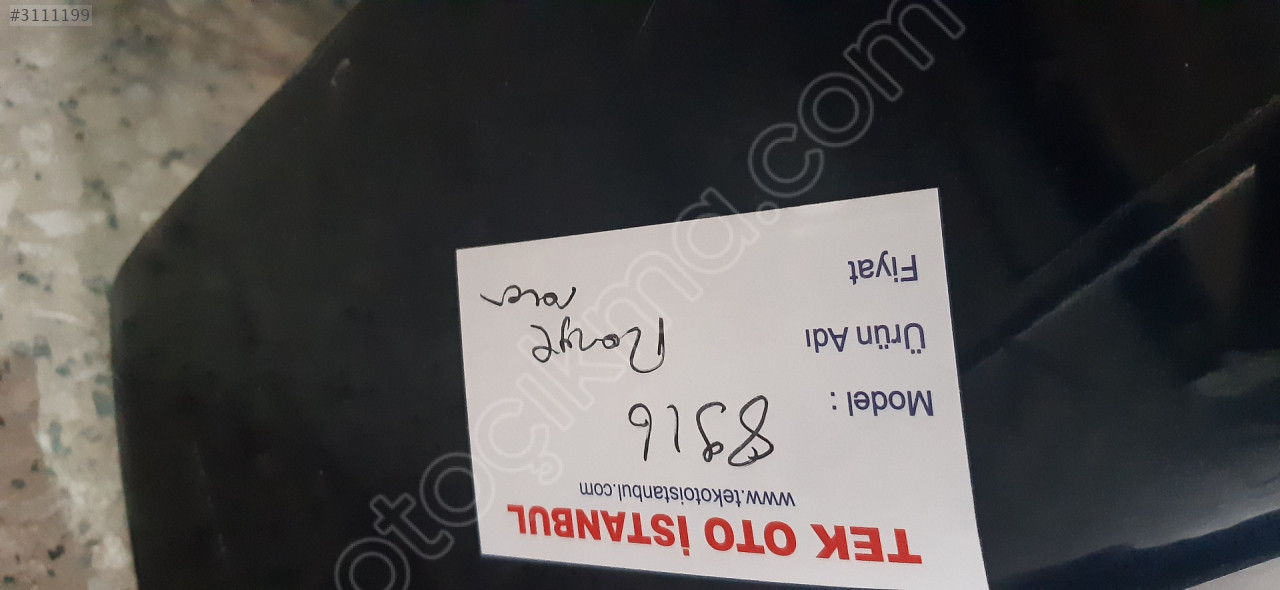 #3111199
otoçıkma.com
TEK OTO İSTANBUL
www.tekotoistanbul.com
Model :
Ürün Adı Range
rover
Fiyat